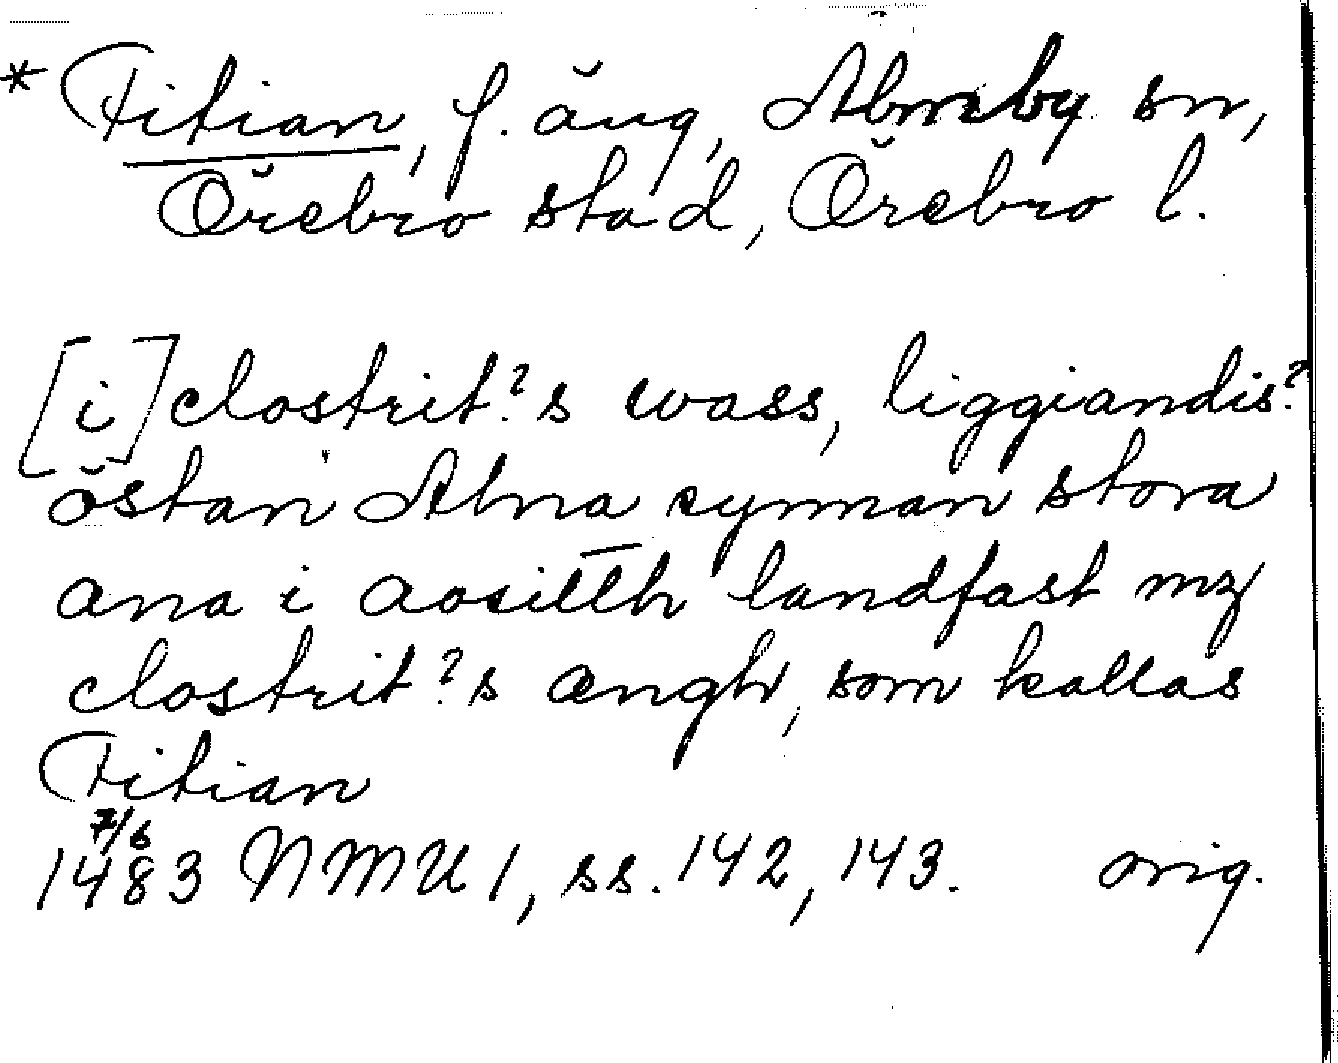 * Fitian, f. äng, Almby sn,
Örebro stad, Örebro l.
[i] clostrit?s wass, liggiandis?
östan Alna cynnan stora
ana i aositth landfast mz
clostrit?s ængh, som kallas
Fitian
7/6
1483 NMU 1, ss. 142, 143. orig.